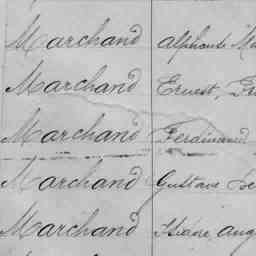 Marchand Alphonse Ma
Marchand Ernest,
Marchand Ferdinand
Marchand Gustave
Marchand Isidore Aug